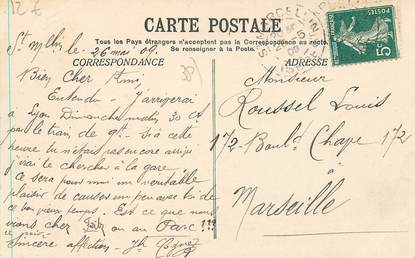 12 €
CARTE POSTALE
Tous les Pays étrangers n'acceptent pas la Correspondance au recto.
Se renseigner à la Poste.
CORRESPONDANCE
ADRESSE
38
5
le : 26 mai 09.
Bien Cher Ami
Entendu - J'arriverai
à Lyon Dimanche matin 30 Ct
par le train de 9h - Si à cette
heure tu n'étais pas encore arrivé
j'irai te chercher à la gare.
Ce sera pour moi un véritable
plaisir de causer un peu avec toi de
ce bon vieux temps. Est ce que nous
irons chez ou au Parc ???
Sincère affection - Jh
Monsieur
Roussel Louis
172 - Boul.d Chave 172
à
Marseille